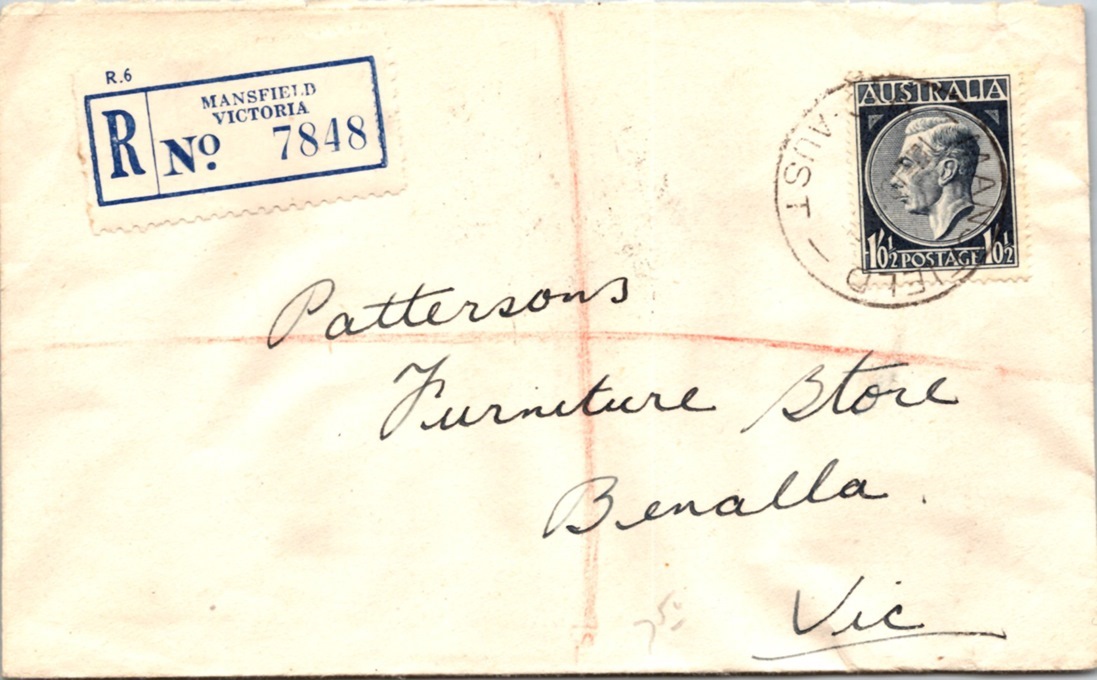 R.6
MANSFIELD
VICTORIA
R No 7848
AUSTRALIA
1'0½ POSTAGE 1'0½
MANSFIELD
AUST
Pattersons
Furniture Store
Benalla.
Vic